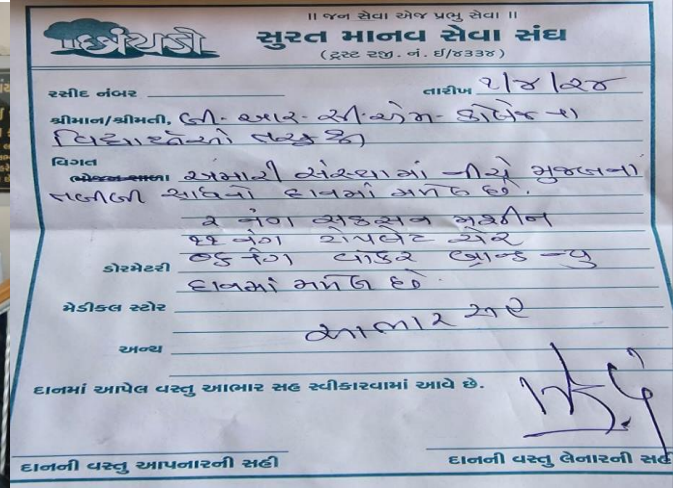 ॥ જન સેવા એજ પ્રભુ સેવા ॥
છાંયડો
સુરત માનવ સેવા સંઘ
(ટ્રસ્ટ રજી. નં. ઈ/૪૩૩૪)
રસીદ નંબર
તારીખ ૨/૪/૨૪
શ્રીમાન/શ્રીમતી, બી.આર.સી.એમ. કોલેજ ના
વિદ્યાર્થીઓ તરફથી
વિગત
ભોજન શાળા અમારી સંસ્થામાં નીચે મુજબનાં
તબીબી સાધનો દાનમાં મળેલ છે.
૨ નંગ સકસન મશીન
૧૧ નંગ ટોયલેટ ચેર
ડોરમેટરી ૦૬ નંગ વોકર બ્રાન્ડ ન્યુ
દાનમાં મળેલ છે.
મેડીકલ સ્ટોર
આભાર સહ
અન્ય
દાનમાં આપેલ વસ્તુ આભાર સહ સ્વીકારવામાં આવે છે.
દાનની વસ્તુ આપનારની સહી
દાનની વસ્તુ લેનારની સહી